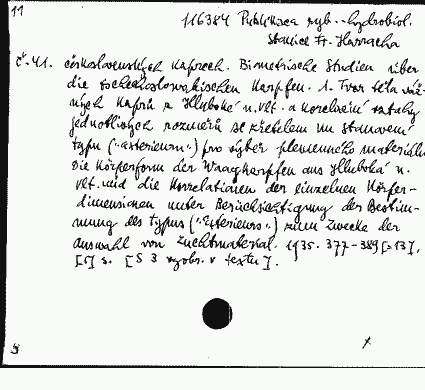 11
116384 Publikace ryb.-hydrobiol.
Stanice Fr. Harracha
č. 41. československých kaprech. Biometrische Studien über
die tschechoslowakischen Karpfen. 1. Tvar těla váž-
ných kaprů z Hluboké n. vlt. a korelační vztahy
jednotlivých rozměrů se zřetelem na stanovení
typu ("exterieuru") pro výběr plemenného materiálu.
Die Körperform der Waagkarpfen aus Hluboká n.
vlt. und die Korrelationen der einzelnen Körper-
dimensionen unter Berücksichtigung der Bestim-
mung des Typus ("Exterieurs") zum Zwecke der
Auswahl von Zuchtmaterial. 1935. 377-389 [=13],
[5] s. [S 3 vyobr. v textu].
x